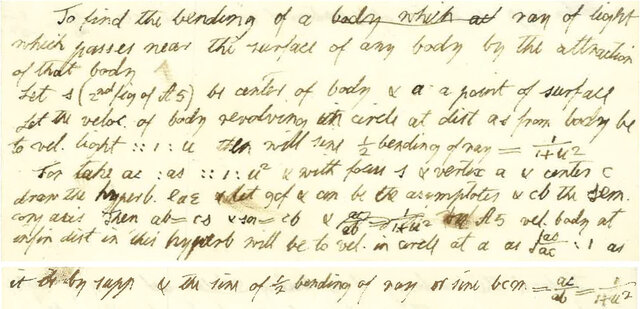 To find the bending of a body which at ray of light
which passes near the surface of any body by the attraction
of that body
Let s (2nd fig of A5) be center of body & a a point of surface
Let the veloc. of body revolving in circle at dist as from body be
to vel. light :: 1 : u then will sine ½ bending of ray = 1/(1+u²)
For take ac : as :: 1 : u² & with focus s & vertex a & center c
draw the hyperb. & let & can be asymptotes & cb the sem.
conj axis Then ab = cs & sa = cb & ac/ab = 1/(1+u²) A5 vel. body at
infin dist in this hyperb will be to vel. in circle at a as √as/ac : 1 as
it is by supp. & the sine of ½ bending of ray or sine bcm = ac/ab = 1/(1+u²)